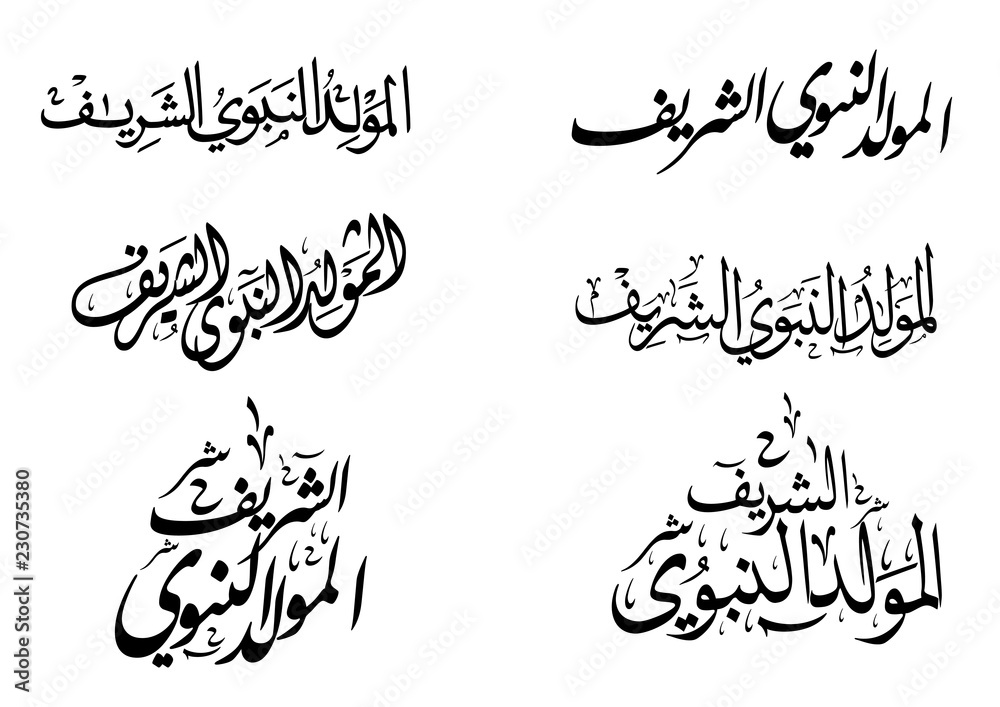 المَولِدُ النَبَوَيُ الشَرِيف
المولد النبوي الشريف
المَولِدُ النَبَوَي الشَرِيف
المَولِدُ النَبَوَيُ الشَرِيف
الشريف
المولد النبوي
الشريف
المَولد النبوُي
Adobe Stock | #230735380